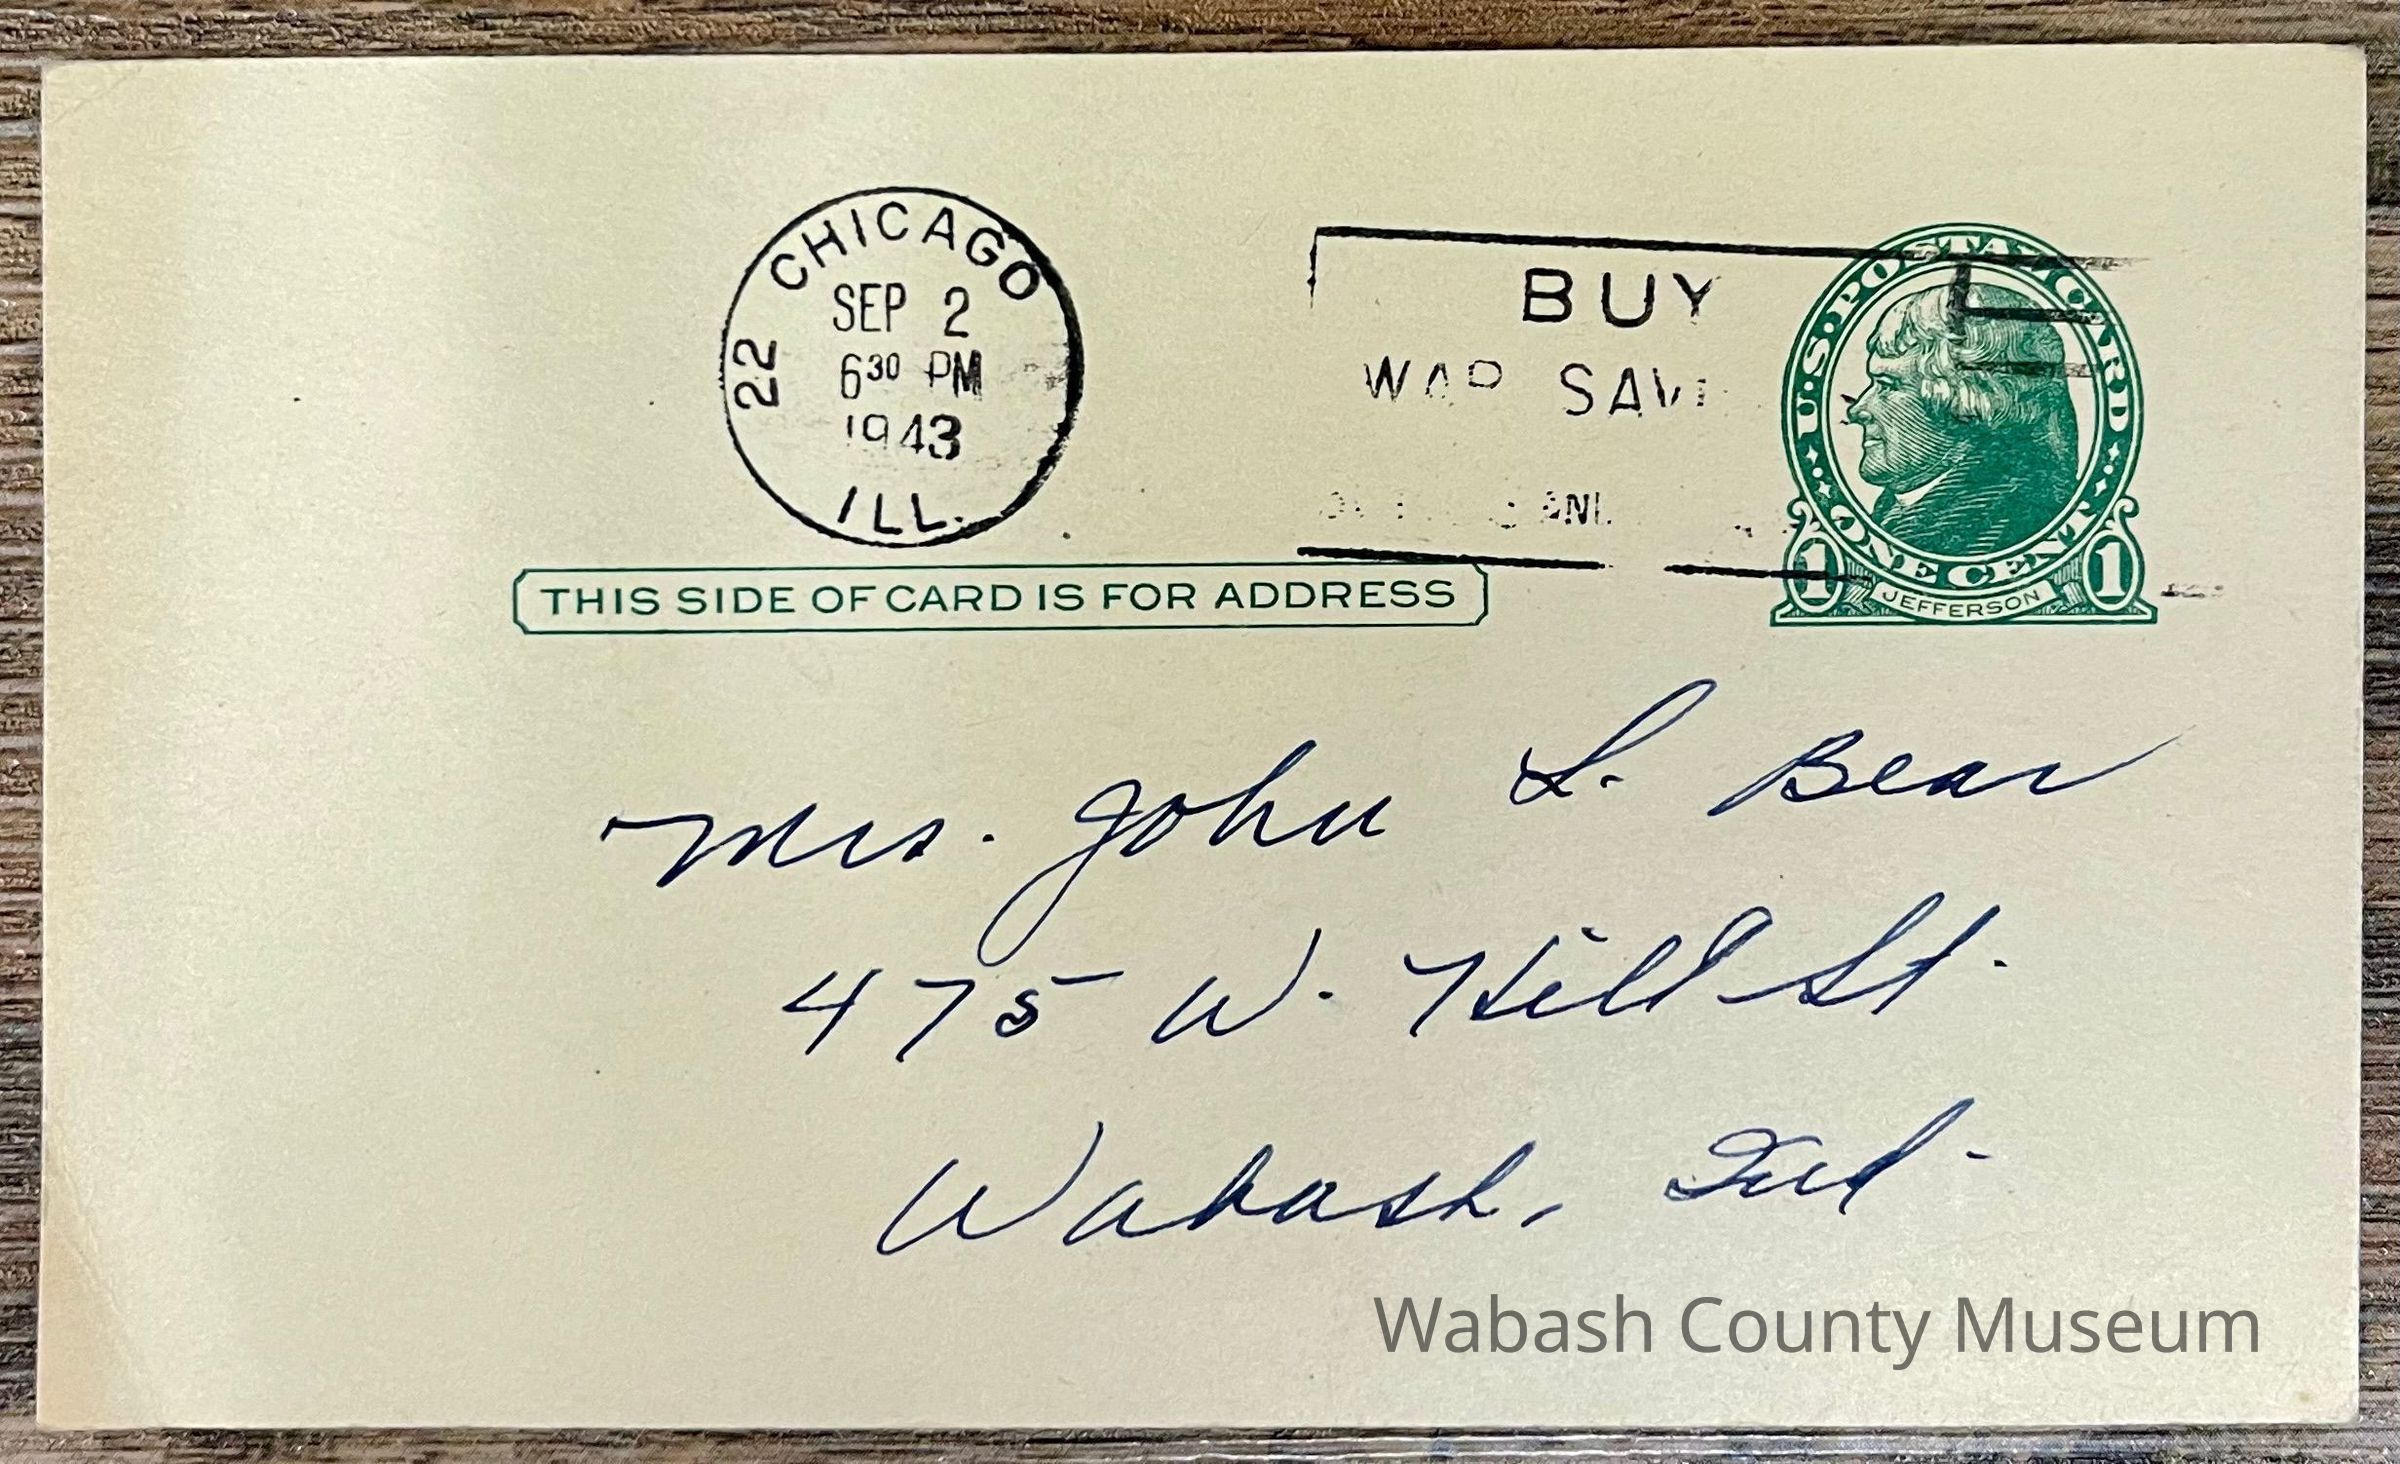 CHICAGO
22
SEP 2
6 30 PM
1943
ILL.
BUY
WAR SAVI
U.S. POSTAL CARD
ONE CENT
1 JEFFERSON 1
THIS SIDE OF CARD IS FOR ADDRESS
Mrs. John L. Bear
475 W. Hill St.
Wabash, Ind.
Wabash County Museum